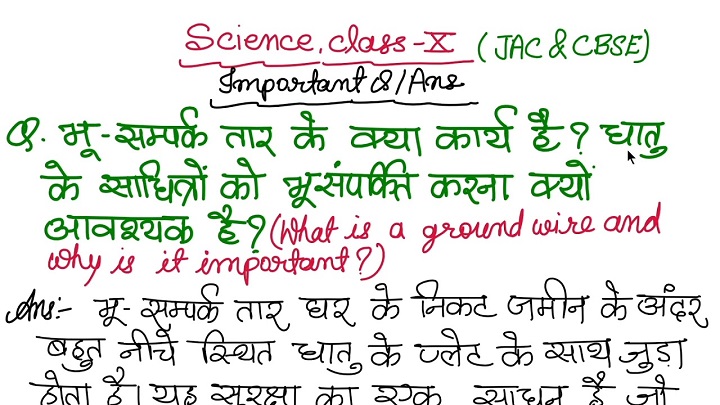 Science, class-X (JAC & CBSE)
Important Q/Ans
Q. भू-सम्पर्क तार के क्या कार्य है? धातु
के साधित्रों को भूसंपर्कित करना क्यों
आवश्यक है? (What is a ground wire and
why is it important?)
Ans:- भू-सम्पर्क तार घर के निकट जमीन के अंदर
बहुत नीचे स्थित धातु के प्लेट के साथ जुड़ा
होता है। यह सुरक्षा का एक साधन है जो